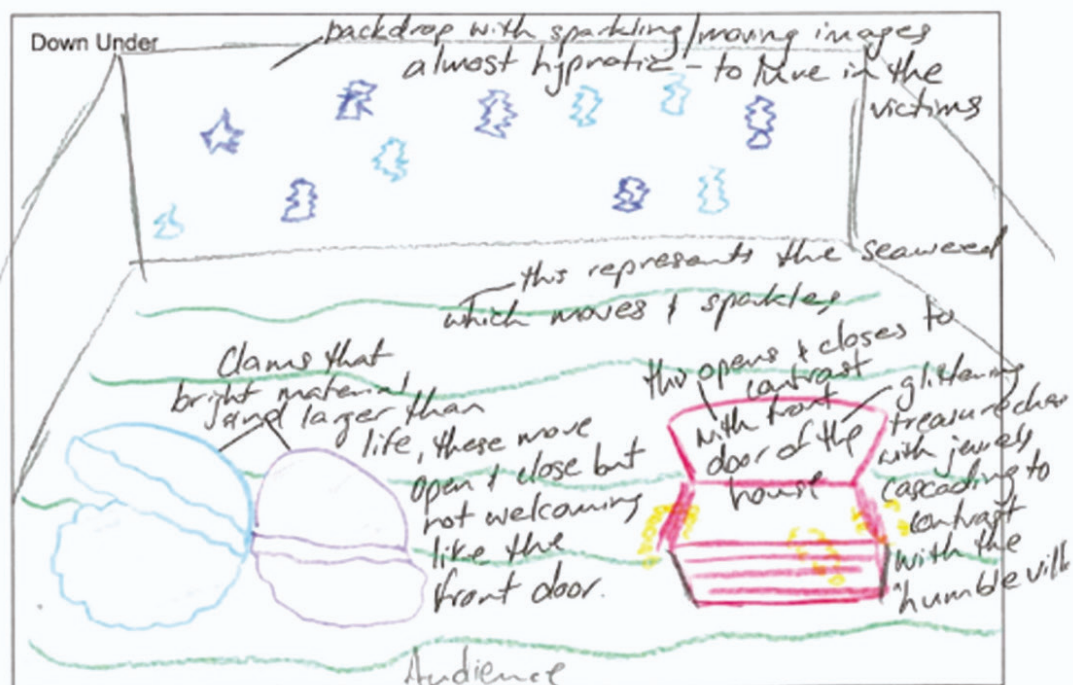 Down Under
backdrop with sparkling/moving images
almost hypnotic - to lure in the
victims
this represents the seaweed
which moves & sparkles
Clams that
bright material
and larger than
life, these move
open & close but
not welcoming
like the
front door.
this opens & closes to
contrast
with front
door of the
house
glistening
treasure ches
with jewels
cascading to
contrast
with the
humble vill
Audience